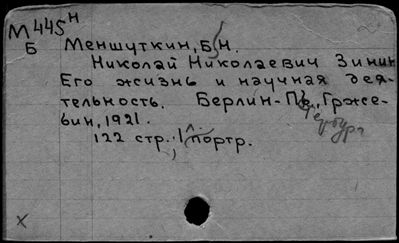 М445н
Б Меншуткин, Б.Н.
Николай Николаевич Зинин
Его жизнь и научная дея-
тельность. Берлин-П., Грже-
бин, 1921. етербург
122 стр., 1 портр.
х